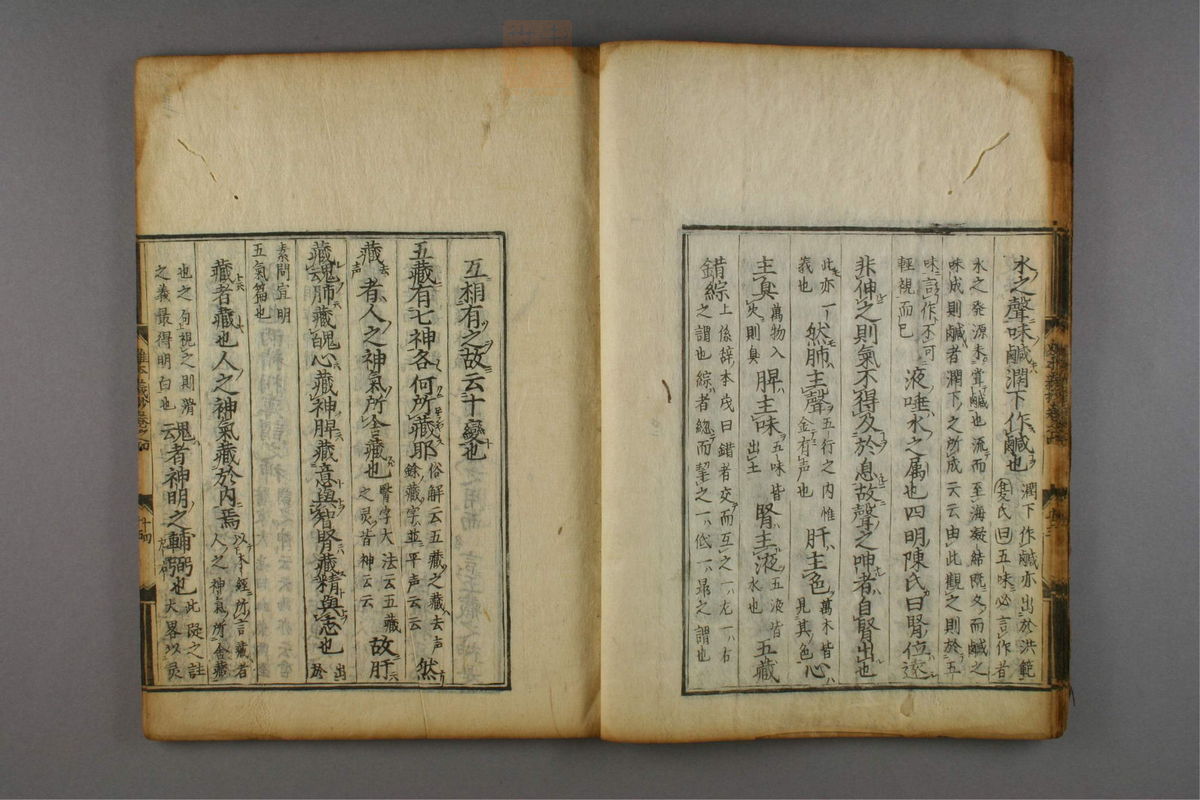 水之聲味鹹潤下作鹹也 潤下作鹹亦出於洪範
水之発源未嘗鹹也流而至海凝結既久而鹹之 夏氏曰五味必言作者
味成則鹹者潤下之所成云云由此觀之則於五
味言作不可
輕視而已 液唾水之属也四明陳氏曰腎位遠
非伸之則氣不得及於息故聲之呻者自腎出也
此亦一
義也 然肺主聲 五行之内惟
金有声也 肝主色 萬木皆
見其色 心
主臭 萬物入
火則臭 脾主味 五味皆
出土 腎主液 五液皆
水也 五藏
錯綜 上係辞本義曰錯者交而互之一左一右
之謂也綜者總而挈之一低一昻之謂也
互相有之故云十變也
五藏有七神各何所藏耶 俗解云五藏之藏去声
餘藏字並平声云云 然
藏 去声 者人之神氣所舎藏也 腎字大法云五藏
之灵皆神云云 故肝
藏魂肺藏魄心藏神脾藏意與智腎藏精與志也 出於
素問宣明
五氣篇也
藏者藏也人之神氣藏於内焉 以本經所言藏者
人之神氣所舎藏
也之句視之則滑
之義最得明白也 云 魂者神明之輔弼也 此段之註
大畧以灵